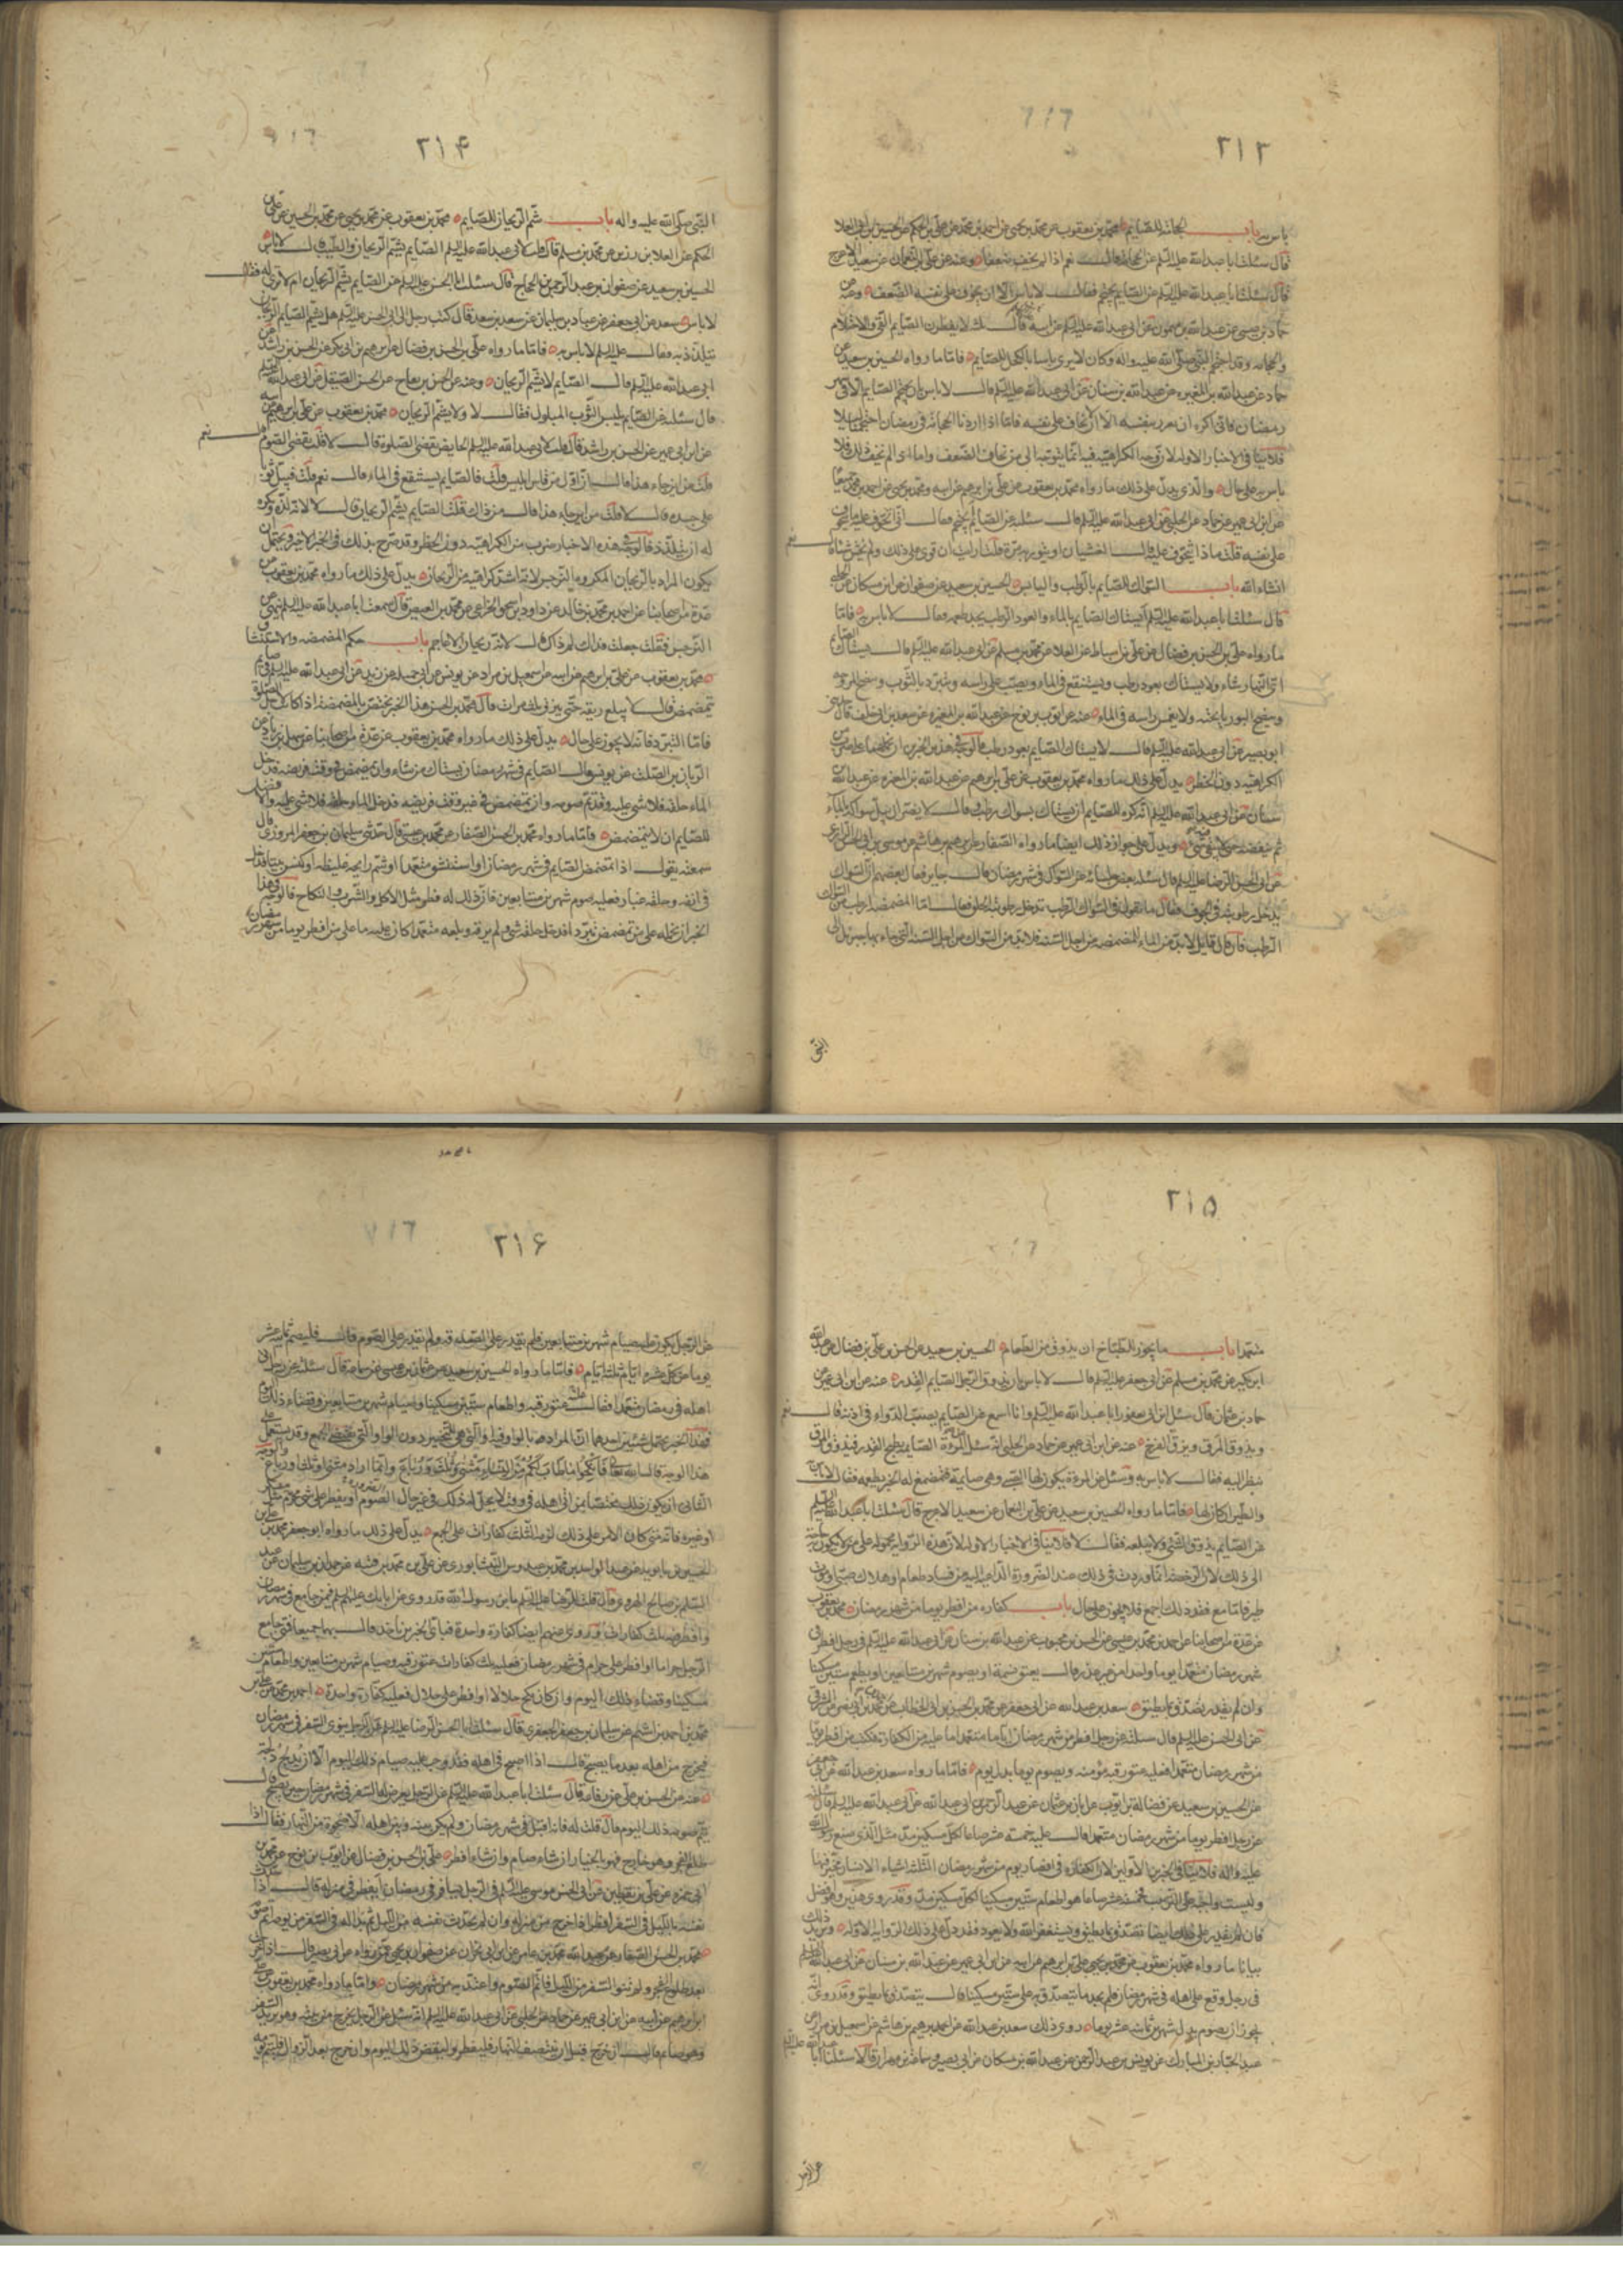 ٢١٣
باس به باب الحجامة للصايم محمد بن يعقوب عن محمد بن يحيى عن احمد بن محمد عن علي بن الحكم عن الحسين بن ابي العلا
قال سئلت ابا عبد الله عليه السلم عن الحجامة للصايم نعم اذا لم يخف ضعفا وعنه عن علي بن النعمان عن سعيد الاعرج
قال سئلت ابا عبد الله عليه السلم عن الصايم يحتجم فقال لا باس الا ان يخوف على نفسه الضعف وعنه عن
حماد بن عيسى عن عبد الله بن ميمون عن ابي عبد الله عليه السلم عن ابيه قال ثلث لا يفطرن الصايم القي والاحتلام
والحجامة وقد احتجم النبي صلى الله عليه واله وكان لا يرى باسا بالكحل للصايم فاما ما رواه الحسين بن سعيد عن
حماد عن عبد الله بن المغيره عن عبد الله بن سنان عن ابي عبد الله عليه السلم قال لا باس بان يحتجم الصايم الا في
رمضان فاني اكره ان يغرر بنفسه الا ان لا يخاف على نفسه فانا اذا اردنا الحجامة في رمضان احتجمنا ليلا
باس به على حال والذي يدل على ذلك ما رواه محمد بن يعقوب عن علي بن ابرهيم عن ابيه ومحمد بن يحيى عن احمد بن محمد جميعا
عن ابن ابي عمير عن حماد عن الحلبي عن ابي عبد الله عليه السلم قال سئلته عن الصايم يحتجم فقال اني اتخوف عليه اما يتخوف
على نفسه قلت ماذا يتخوف عليه قال الغشيان او يثور به مرة قلت ارايت ان قوي على ذلك ولم يخش شيئا قال نعم
انشاء الله باب السواك للصايم بالرطب واليابس الحسين بن سعيد عن صفوان عن ابن مسكان عن الحلبي
قال سئلت ابا عبد الله عليه السلم ايستاك الصايم بالماء والعود الرطب يجد طعمه فقال لا باس به فاما
ما رواه علي بن الحسن بن فضال عن علي بن اسباط عن العلا عن محمد بن مسلم عن ابي عبد الله عليه السلم قال يستاك الصايم
اي النهار شاء ولا يستاك بعود رطب ويستنقع في الماء ويصب على راسه ويتبرد بالثوب وينضح المروحه
وينضح البوريا تحته ولا يغمس راسه في الماء عنه عن ايوب بن نوح عن عبد الله بن المغيره عن سعد بن ابي خلف قال حدثني
ابو بصير عن ابي عبد الله عليه السلم قال لا يستاك الصايم بعود رطب فالوجه في هذين الخبرين ان نحملهما على ضرب من
الكراهية دون الحظر يدل على ذلك ما رواه محمد بن يعقوب عن علي بن ابرهيم عن عبد الله بن المغيره عن عبد الله بن
سنان عن ابي عبد الله عليه السلم انه كره للصايم ان يستاك بسواك رطب وقال لا يضر ان يبل سواكه بالماء
ثم ينفضه حتى لا يبقى فيه شيء ويدل على جواز ذلك ايضا ما رواه الصفار عن ابرهيم بن هاشم عن موسى بن ابي الحسن الرازي
عن ابي الحسن الرضا عليه السلم قال سئله بعض جلسائه عن السواك في شهر رمضان قال جايز فقال بعضهم ان السواك
يدخل رطوبته في الجوف فقال ما تقول في السواك الرطب تدخل رطوبته الحلق فقال الماء للمضمضة ارطب من السواك
الرطب فان قال قايل لابد من الماء للمضمضة من اجل السنه فلابد من السواك من اجل السنه التي جاء بها جبرئيل الى
النبي
٢١۴
النبي صلى الله عليه واله باب شم الريحان للصايم محمد بن يعقوب عن محمد بن يحيى عن محمد بن الحسين عن علي بن
الحكم عن العلا بن رزين عن محمد بن مسلم قال قلت لابي عبد الله عليه السلم الصايم يشم الريحان والطيب قال لا باس
الحسين بن سعيد عن صفوان عن عبد الرحمن بن الحجاج قال سئلت ابا الحسن عليه السلم عن الصايم يشم الريحان ام لا ترى له فقال
لا باس سعد عن ابي جعفر عن عباد بن سليمان عن سعد بن سعد قال كتب رجل الى ابي الحسن عليه السلم هل يشم الصايم الريحان
يتلذذ به فقال عليه السلم لا باس به فاما ما رواه علي بن الحسن بن فضال عن ابرهيم بن ابي بكر عن الحسن بن راشد عن
ابي عبد الله عليه السلم قال الصايم لا يشم الريحان وعنه عن الحسن بن بقاح عن الحسن الصيقل عن ابي عبد الله عليه السلم
قال سئلته عن الصايم يلبس الثوب المبلول فقال لا ولا يشم الريحان محمد بن يعقوب عن علي بن ابرهيم عن ابيه
عن ابن ابي عمير عن الحسن بن راشد قال قلت لابي عبد الله عليه السلم الحايض تقضي الصلوة قال لا قلت تقضي الصوم قال نعم
قلت من اين جاء هذا قال ان اول من قاس ابليس قلت فالصايم يستنقع في الماء قال نعم قلت فيبل ثوبا
على جسده قال لا قلت من اين جاء هذا قال من ذاك قلت الصايم يشم الريحان قال لا لانه لذة وكره
له ان يتلذذ فالوجه في هذه الاخبار ضرب من الكراهية دون الحظر وقد صرح بذلك في الخبر الاخير ويحتمل ان
يكون المراد بالريحان المكروه النرجس لانه اشد كراهية من الريحان يدل على ذلك ما رواه محمد بن يعقوب عن
عدة من اصحابنا عن احمد بن محمد بن خالد عن داود بن اسحق الخزاعي عن محمد بن العيص قال سمعت ابا عبد الله عليه السلم ينهى عن
النرجس فقلت جعلت فداك لم ذاك قال لانه ريحان الاعاجم باب حكم المضمضه والاستنشاق
محمد بن يعقوب عن علي بن ابرهيم عن ابيه عن اسمعيل بن مرار عن يونس عن ابي جميله عن زيد عن ابي عبد الله عليه السلم في صايم
يتمضمض قال لا يبلع ريقه حتى يبزق ثلث مرات قال محمد بن الحسن هذا الخبر مختص بالمضمضة اذا كانت لاجل الصلوة
فاما التبرد فانه لا يجوز على حال يدل على ذلك ما رواه محمد بن يعقوب عن عدة من اصحابنا عن سهل بن زياد عن
الريان بن الصلت عن يونس قال الصايم في شهر رمضان يستاك متى شاء وان تمضمض في وقت فريضه فدخل
الماء حلقه فلا شي عليه وقد تم صومه وان تمضمض في غير وقت فريضه فدخل الماء حلقه
للصايم ان لا يتمضمض فاما ما رواه محمد بن الحسن الصفار عن محمد بن عيسى قال حدثني سليمان بن جعفر المروزي قال
سمعته يقول اذا تمضمض الصايم في شهر رمضان او استنشق متعمدا او شم رايحه غليظه او كنس بيتا فدخل
في انفه وحلقه غبار فعليه صوم شهرين متتابعين فان ذلك له فطر مثل الاكل والشرب والنكاح فالوجه في هذا
الخبر ان نحمله على من تمضمض تبردا فدخل حلقه شي ولم يبزقه وبلعه متعمدا كان عليه ما على من افطر يوما من شهر رمضان
٢١۵
متعمدا باب ما يجوز للطباخ ان يذوق من الطعام الحسين بن سعيد عن الحسن بن علي بن فضال عن عبد الله
ابن بكير عن محمد بن مسلم عن ابي جعفر عليه السلم قال لا باس بان يذوق الرجل الصايم القدر عنه عن ابن ابي عمير عن
حماد بن عثمان قال سئل ابن ابي يعفور ابا عبد الله عليه السلم وانا اسمع عن الصايم يصب الدواء في اذنه قال نعم
ويذوق المرق ويزق الفرخ عنه عن ابن ابي عمير عن حماد عن الحلبي انه سئل عن المرأة الصايم يطبخ القدر فيذوق المرق
ينظر اليه فقال لا باس به وسئل عن المرءة يكون لها الصبي وهي صايمة فتمضغ له الخبز يطعمه فقال لا باس
والطير ان كان لها فاما ما رواه الحسين بن سعيد عن علي بن النعمان عن سعيد الاعرج قال سئلت ابا عبد الله عليه السلم
عن الصايم يذوق الشي ولا يبلعه فقال لا فلا ينافي الاخبار الاوله لان هذه الروايه محموله على من لا يكون به حاجة
الى ذلك لان الرخصة انما وردت في ذلك عند الضرورة الداعيه اليه من فساد طعام او هلاك صبي او موت
طير فاما مع فقد ذلك اجمع فلا يجوز على حال باب كفارة من افطر يوما من شهر رمضان محمد بن يعقوب
عن عدة من اصحابنا عن احمد بن محمد بن عيسى عن الحسن بن محبوب عن عبد الله بن سنان عن ابي عبد الله عليه السلم في رجل افطر في
شهر رمضان متعمدا يوما واحدا من غير عذر قال يعتق نسمة او يصوم شهرين متتابعين او يطعم ستين مسكينا
وان لم يقدر تصدق بما يطيق سعد بن عبد الله عن ابي جعفر عن محمد بن الحسين بن ابي الخطاب عن محمد بن ابي نصر عن المشرقي
عن ابي الحسن عليه السلم قال سئلته عن رجل افطر من شهر رمضان اياما متعمدا ما عليه من الكفارة فكتب من افطر يوما
من شهر رمضان متعمدا فعليه عتق رقبه مؤمنه ويصوم يوما بدل يوم فاما ما رواه سعد بن عبد الله عن ابي جعفر
عن الحسين بن سعيد عن فضالة بن ايوب عن ابان بن عثمان عن عبد الرحمن بن ابي عبد الله عن ابي عبد الله عليه السلم قال سئلته
عن رجل افطر يوما من شهر رمضان متعمدا قال عليه خمسة عشر صاعا لكل مسكين مد مثل الذي صنع رسول الله
فان لم يقدر على ذلك ايضا تصدق بما يطيق ويستغفر الله ولا يعود فقد دل على ذلك الروايه الاوله ويزيد ذلك
بيانا ما رواه محمد بن يعقوب عن محمد بن يحيى علي بن ابرهيم عن ابيه عن ابن ابي عمير عن عبد الله بن سنان عن ابي عبد الله عليه السلم
في رجل وقع على اهله في شهر رمضان فلم يجد ما يتصدق به على ستين مسكينا قال يتصدق بما يطيق وقد روى انه
يجوز ان يصوم بدل شهرين ثمانيه عشر يوما روى ذلك سعد بن عبد الله عن ابرهيم بن هاشم عن اسمعيل بن مرار عن
عبد الجبار بن المبارك عن يونس بن عبد الرحمن عن عبد الله بن مسكان عن ابي بصير وسماعة بن مهران قالا سئلنا ابا عبد الله عليه السلم
عن الرجل
٢١۶
عن الرجل يكون عليه صيام شهرين متتابعين فلم يقدر على الصيام ولم يقدر على الصدقه ولم يقدر على الصوم قال فليصم ثمانيه عشر
يوما عن كل عشرة ايام ثلثة ايام فاما ما رواه الحسين بن سعيد عن عثمان بن عيسى عن سماعة قال سئلته عن رجل اتى
اهله في رمضان متعمدا فقال عليه عتق رقبه واطعام ستين مسكينا وصيام شهرين متتابعين وقضاء ذلك اليوم
فهذا الخبر يحتمل شيئين احدهما ان المراد به بالواو فيه او التي هي للتخيير دون الواو التي تقتضي الجمع وقد يستعمل على
هذا الوجه قال الله تعالى فانكحوا ما طاب لكم من النساء مثنى وثلاث ورباع وانما اراد مثنى او ثلث او رباع والوجه
الثاني ان يكون ذلك مختصا بمن اتى اهله في وقت لا يحل له ذلك في غير حال الصوم او يفطر على شي محرم مثل مسكر
او غيره فانه متى كان الامر على ذلك لزمه الثلث كفارات على الجمع يدل على ذلك ما رواه ابو جعفر محمد بن علي بن
الحسين بن بابويه عن عبد الواحد بن محمد بن عبدوس النيشابوري عن علي بن محمد بن قتيبه عن حمدان بن سليمان عن عبد
السلم بن صالح الهروي قال قلت للرضا عليه السلم يا بن رسول الله قد روى عن ابائك عليهم السلم فيمن جامع في شهر رمضان
او افطر فيه ثلث كفارات وروى عنهم ايضا كفارة واحدة فباي الخبرين ناخذ قال بهما جميعا متى جامع
الرجل حراما او افطر على حرام في شهر رمضان فعليه ثلث كفارات عتق رقبه وصيام شهرين متتابعين واطعام ستين
مسكينا وقضاء ذلك اليوم وان كان نكح حلالا او افطر على حلال فعليه كفارة واحدة
محمد بن احمد بن اشيم عن سليمان بن جعفر الجعفري قال سئلت ابا الحسن الرضا عليه السلم عن الرجل ينوي السفر في شهر رمضان
فيخرج من اهله بعد ما يصبح قال اذا اصبح في اهله فقد وجب عليه صيام ذلك اليوم الا ان يدلج دلجة
عنه عن الحسن بن علي عن رفاعه قال سئلت ابا عبد الله عليه السلم عن الرجل يعرض له السفر في شهر رمضان حين يصبح قال
يتم صومه ذلك اليوم قال قلت له فانه اقبل في شهر رمضان ولم يكن بينه وبين اهله الا ضحوة من النهار فقال اذا
طلع الفجر وهو خارج فهو بالخيار ان شاء صام وان شاء افطر علي بن الحسن بن فضال عن ايوب بن نوح عن محمد بن
ابي حمزه عن علي بن يقطين عن ابي الحسن موسى عليه السلم في الرجل يسافر في رمضان ايفطر في منزله قال اذا حدث
نفسه بالليل في السفر افطر اذا خرج من منزله وان لم يحدث نفسه من الليل ثم بدا له في السفر من يومه اتم صومه
محمد بن الحسن الصفار عن عبد الله محمد بن عامر عن ابن ابي نجران عن صفوان بن يحيى عمن رواه عن ابي بصير قال اذا خرجت
بعد طلوع الفجر ولم تنو السفر من الليل فاتم الصوم واعتد به من شهر رمضان واما ما رواه محمد بن يعقوب عن علي بن
ابرهيم عن ابيه عن ابن ابي عمير عن حماد عن الحلبي عن ابي عبد الله عليه السلم انه سئل عن الرجل يخرج من بيته وهو يريد السفر
وهو صايم قال ان خرج قبل ان ينتصف النهار فليفطر وليقض ذلك اليوم وان خرج بعد الزوال فليتم يومه